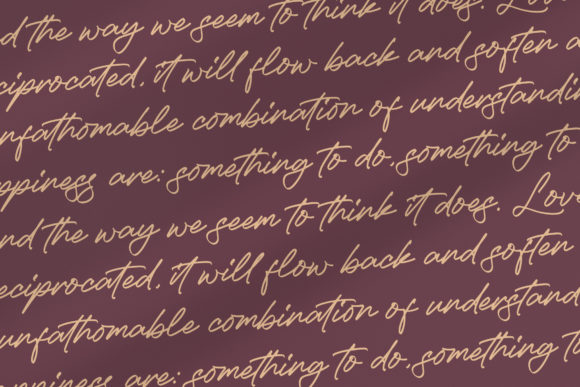 nd the way we seem to think it does. Love
ciprocated, it will flow back and soften a
nfathomable combination of understandin
ppiness are: something to do, something to
nd the way we seem to think it does. Love
eciprocated, it will flow back and soften
unfathomable combination of understand
appiness are: something to do, something to